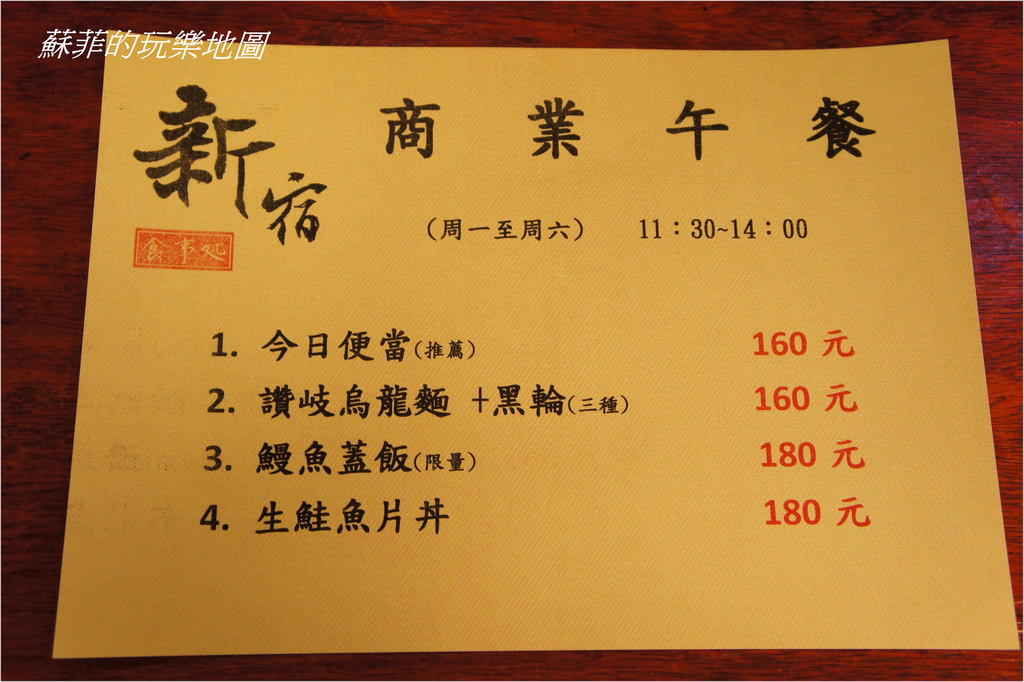 蘇菲的玩樂地圖
新宿
食事処
商業午餐
(周一至周六) 11：30~14：00
1. 今日便當(推薦) 160 元
2. 讚岐烏龍麵 +黑輪(三種) 160 元
3. 鰻魚蓋飯(限量) 180 元
4. 生鮭魚片丼 180 元